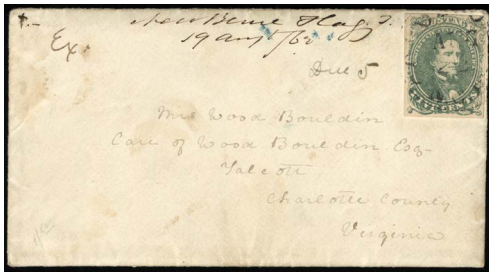 New Berne Flag
19 Aug /62
Ex.
Due 5
Mrs Wood Bouldin
Care of Wood Bouldin Esq-
Talcott
Charlotte County
Virginia